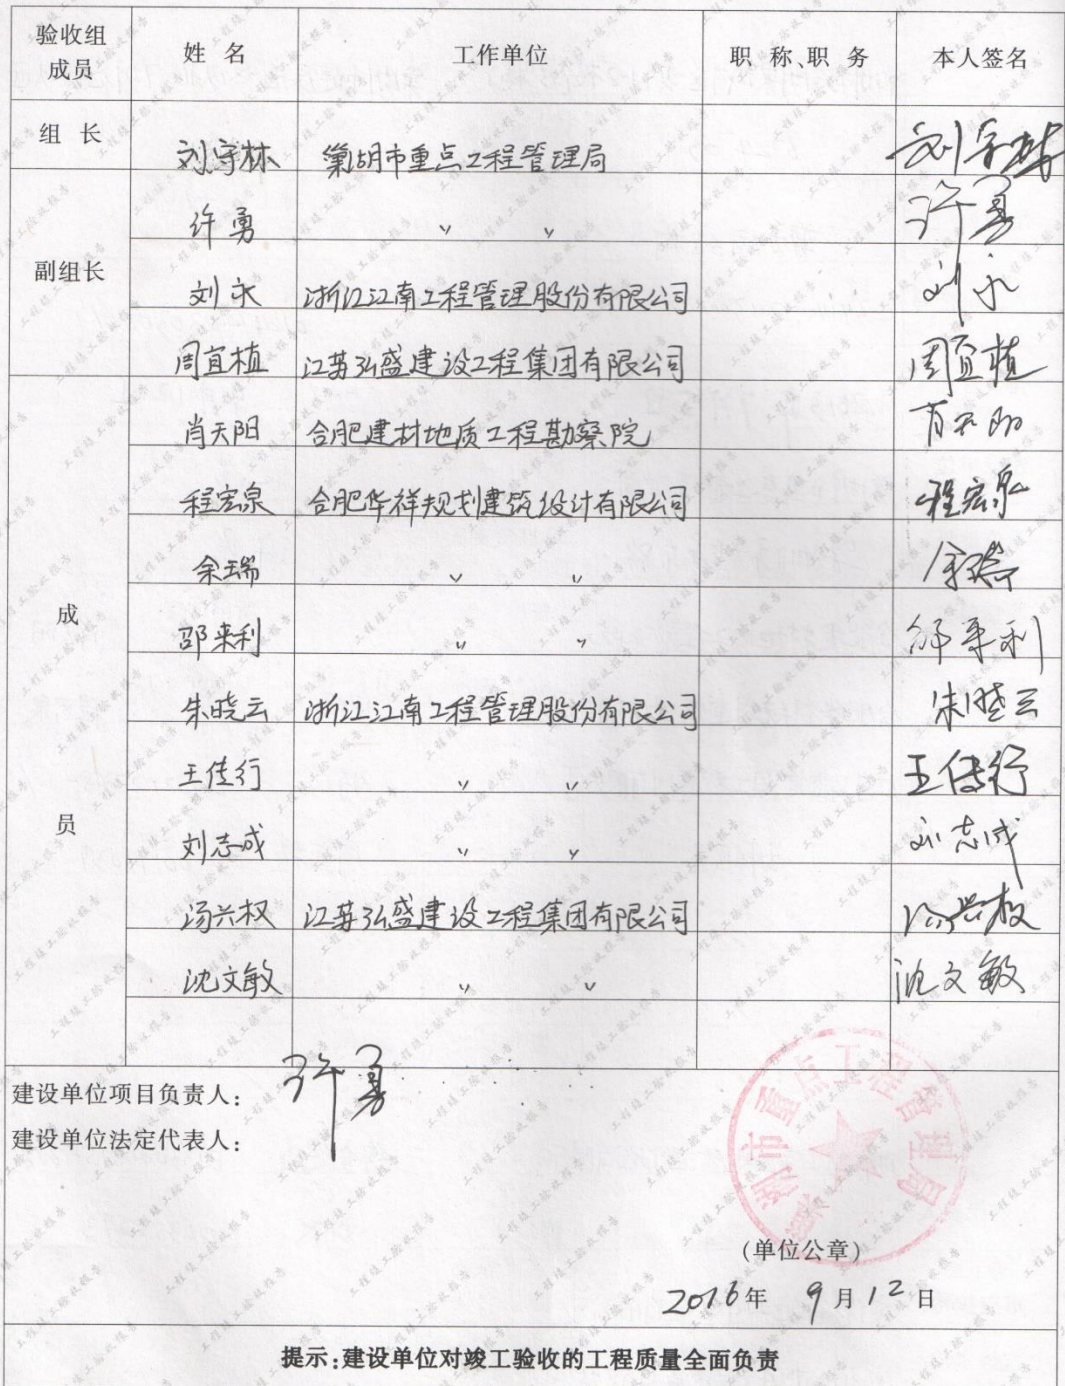 验收组成员 姓 名 工作单位 职 称、职 务 本人签名
组 长 刘守林 巢湖市重点工程管理局 刘守林
副组长 许勇 〃 〃 许勇
刘永 浙江江南工程管理股份有限公司 刘永
周宜植 江苏弘盛建设工程集团有限公司 周宜植
成员 肖天阳 合肥建材地质工程勘察院 肖天阳
程宏泉 合肥华祥规划建筑设计有限公司 程宏泉
余瑞 〃 〃 余瑞
邵来利 〃 〃 邵来利
朱晓云 浙江江南工程管理股份有限公司 朱晓云
王传行 〃 〃 王传行
刘志成 〃 〃 刘志成
汤兴权 江苏弘盛建设工程集团有限公司 汤兴权
沈文敏 〃 〃 沈文敏
建设单位项目负责人: 许勇
建设单位法定代表人:
巢湖市重点工程管理局
(单位公章)
2016年 9月12日
提示:建设单位对竣工验收的工程质量全面负责
工程竣工验收报告